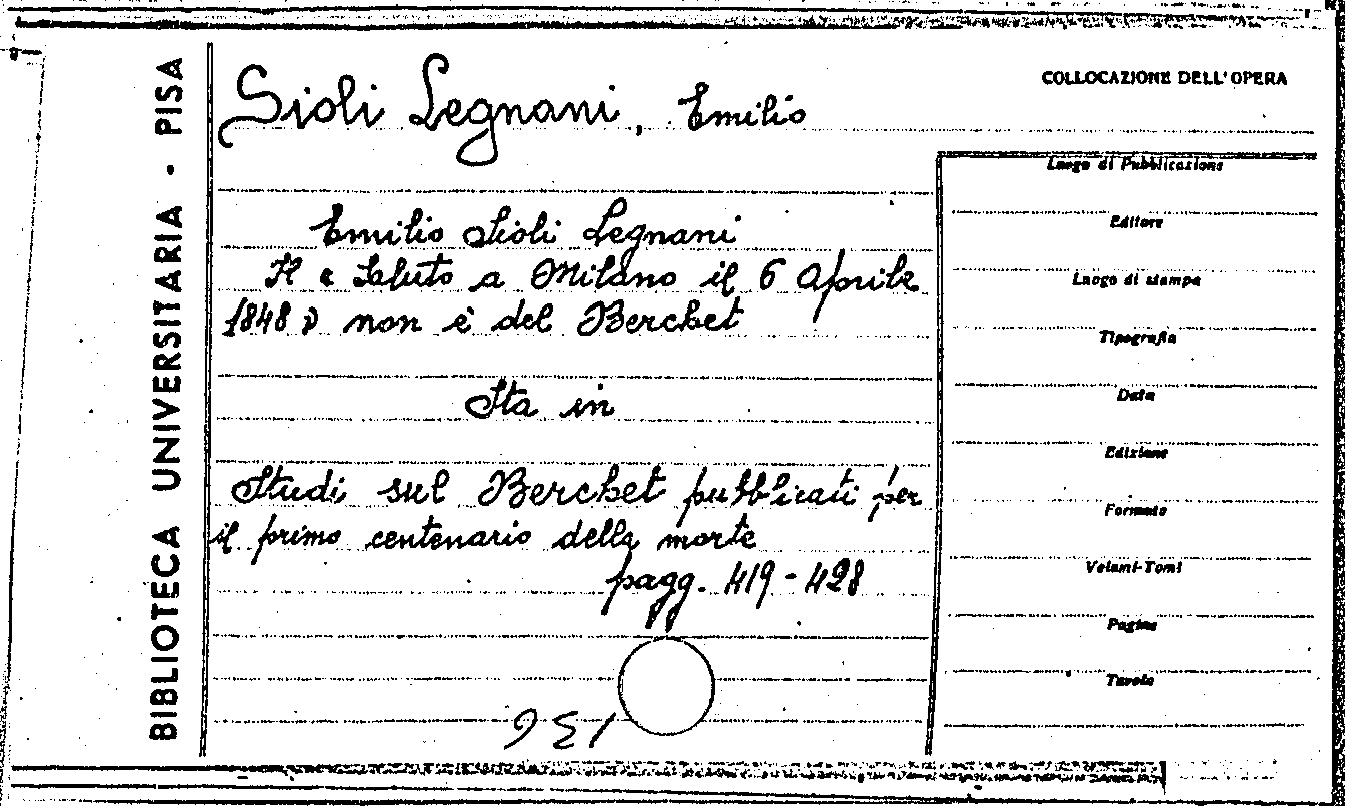 BIBLIOTECA UNIVERSITARIA - PISA
COLLOCAZIONE DELL'OPERA
Sioli Legnani, Emilio
Emilio Sioli Legnani
Il « Saluto a Milano il 6 Aprile
1848 » non è del Berchet
Sta in
Studi sul Berchet pubblicati per
il primo centenario della morte
pagg. 419-428
Luogo di Pubblicazione
Editore
Luogo di stampa
Tipografia
Data
Edizione
Formato
Volumi-Tomi
Pagine
Tavole